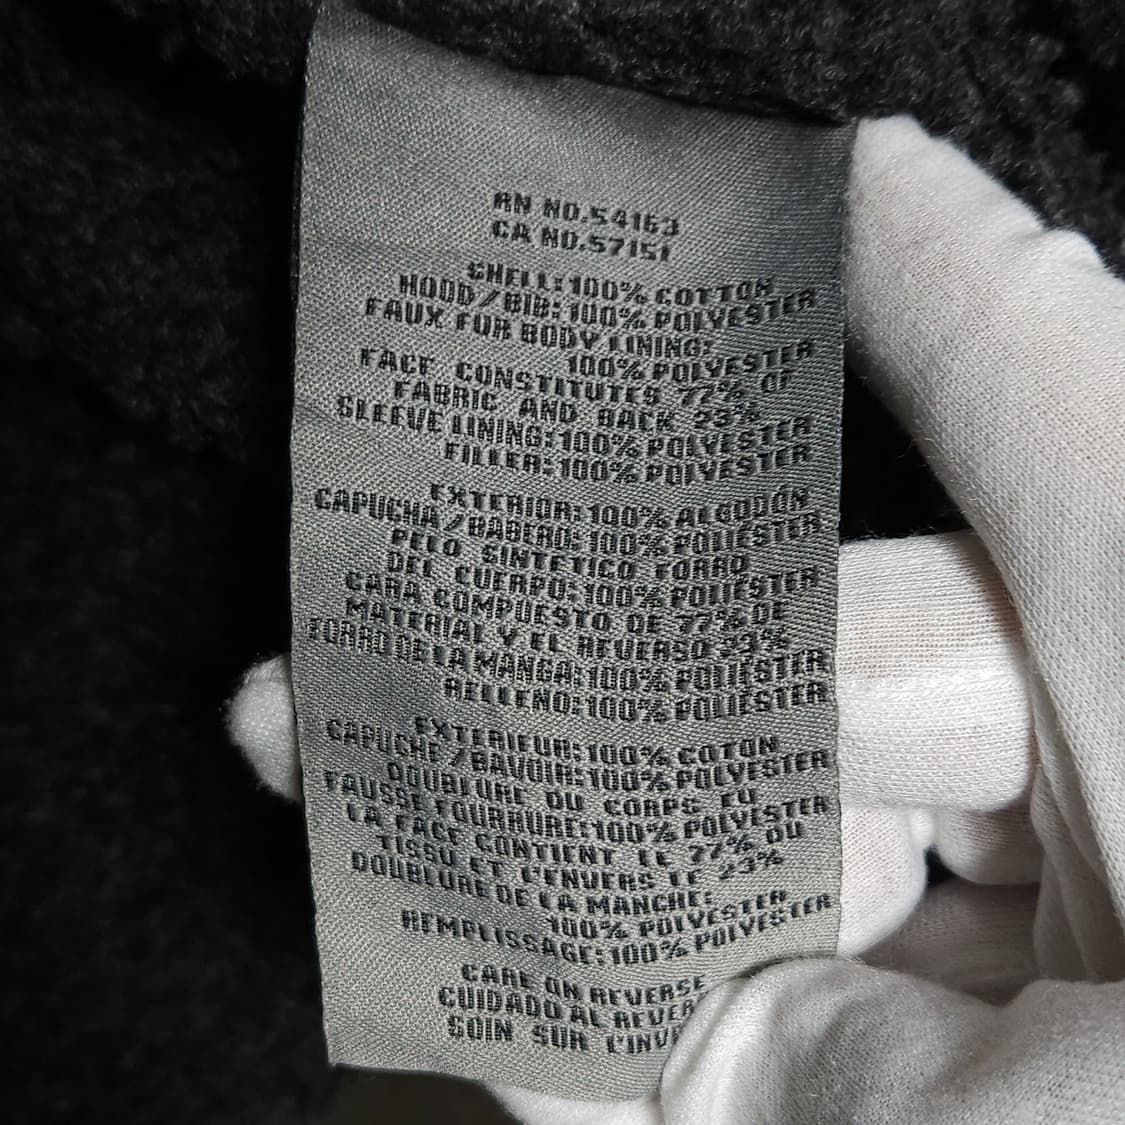 RN NO.54163
CA NO.57151
SHELL:100% COTTON
HOOD/BIB:100% POLYESTER
FAUX FUR BODY LINING:
100% POLYESTER
FACE CONSTITUTES 77% OF
FABRIC AND BACK 23%
SLEEVE LINING:100% POLYESTER
FILLER:100% POLYESTER
EXTERIOR:100% ALGODÓN
CAPUCHA/BABERO:100% POLIÉSTER
PELO SINTETICO FORRO
DEL CUERPO:100% POLIÉSTER
CARA COMPUESTO DE 77% DE
MATERIAL Y EL REVERSO 23%
FORRO DE LA MANGA:100% POLIÉSTER
RELLENO:100% POLIÉSTER
EXTERIEUR:100% COTON
CAPUCHE/BAVOIR:100% POLYESTER
DOUBLURE DU CORPS EU
FAUSSE FOURRURE:100% POLYESTER
LA FACE CONTIENT LE 77% DU
TISSU ET L'ENVERS LE 23%
DOUBLURE DE LA MANCHE:
100% POLYESTER
REMPLISSAGE:100% POLYESTER
CARE ON REVERSE
CUIDADO AL REVER
SOIN SUR L'INV